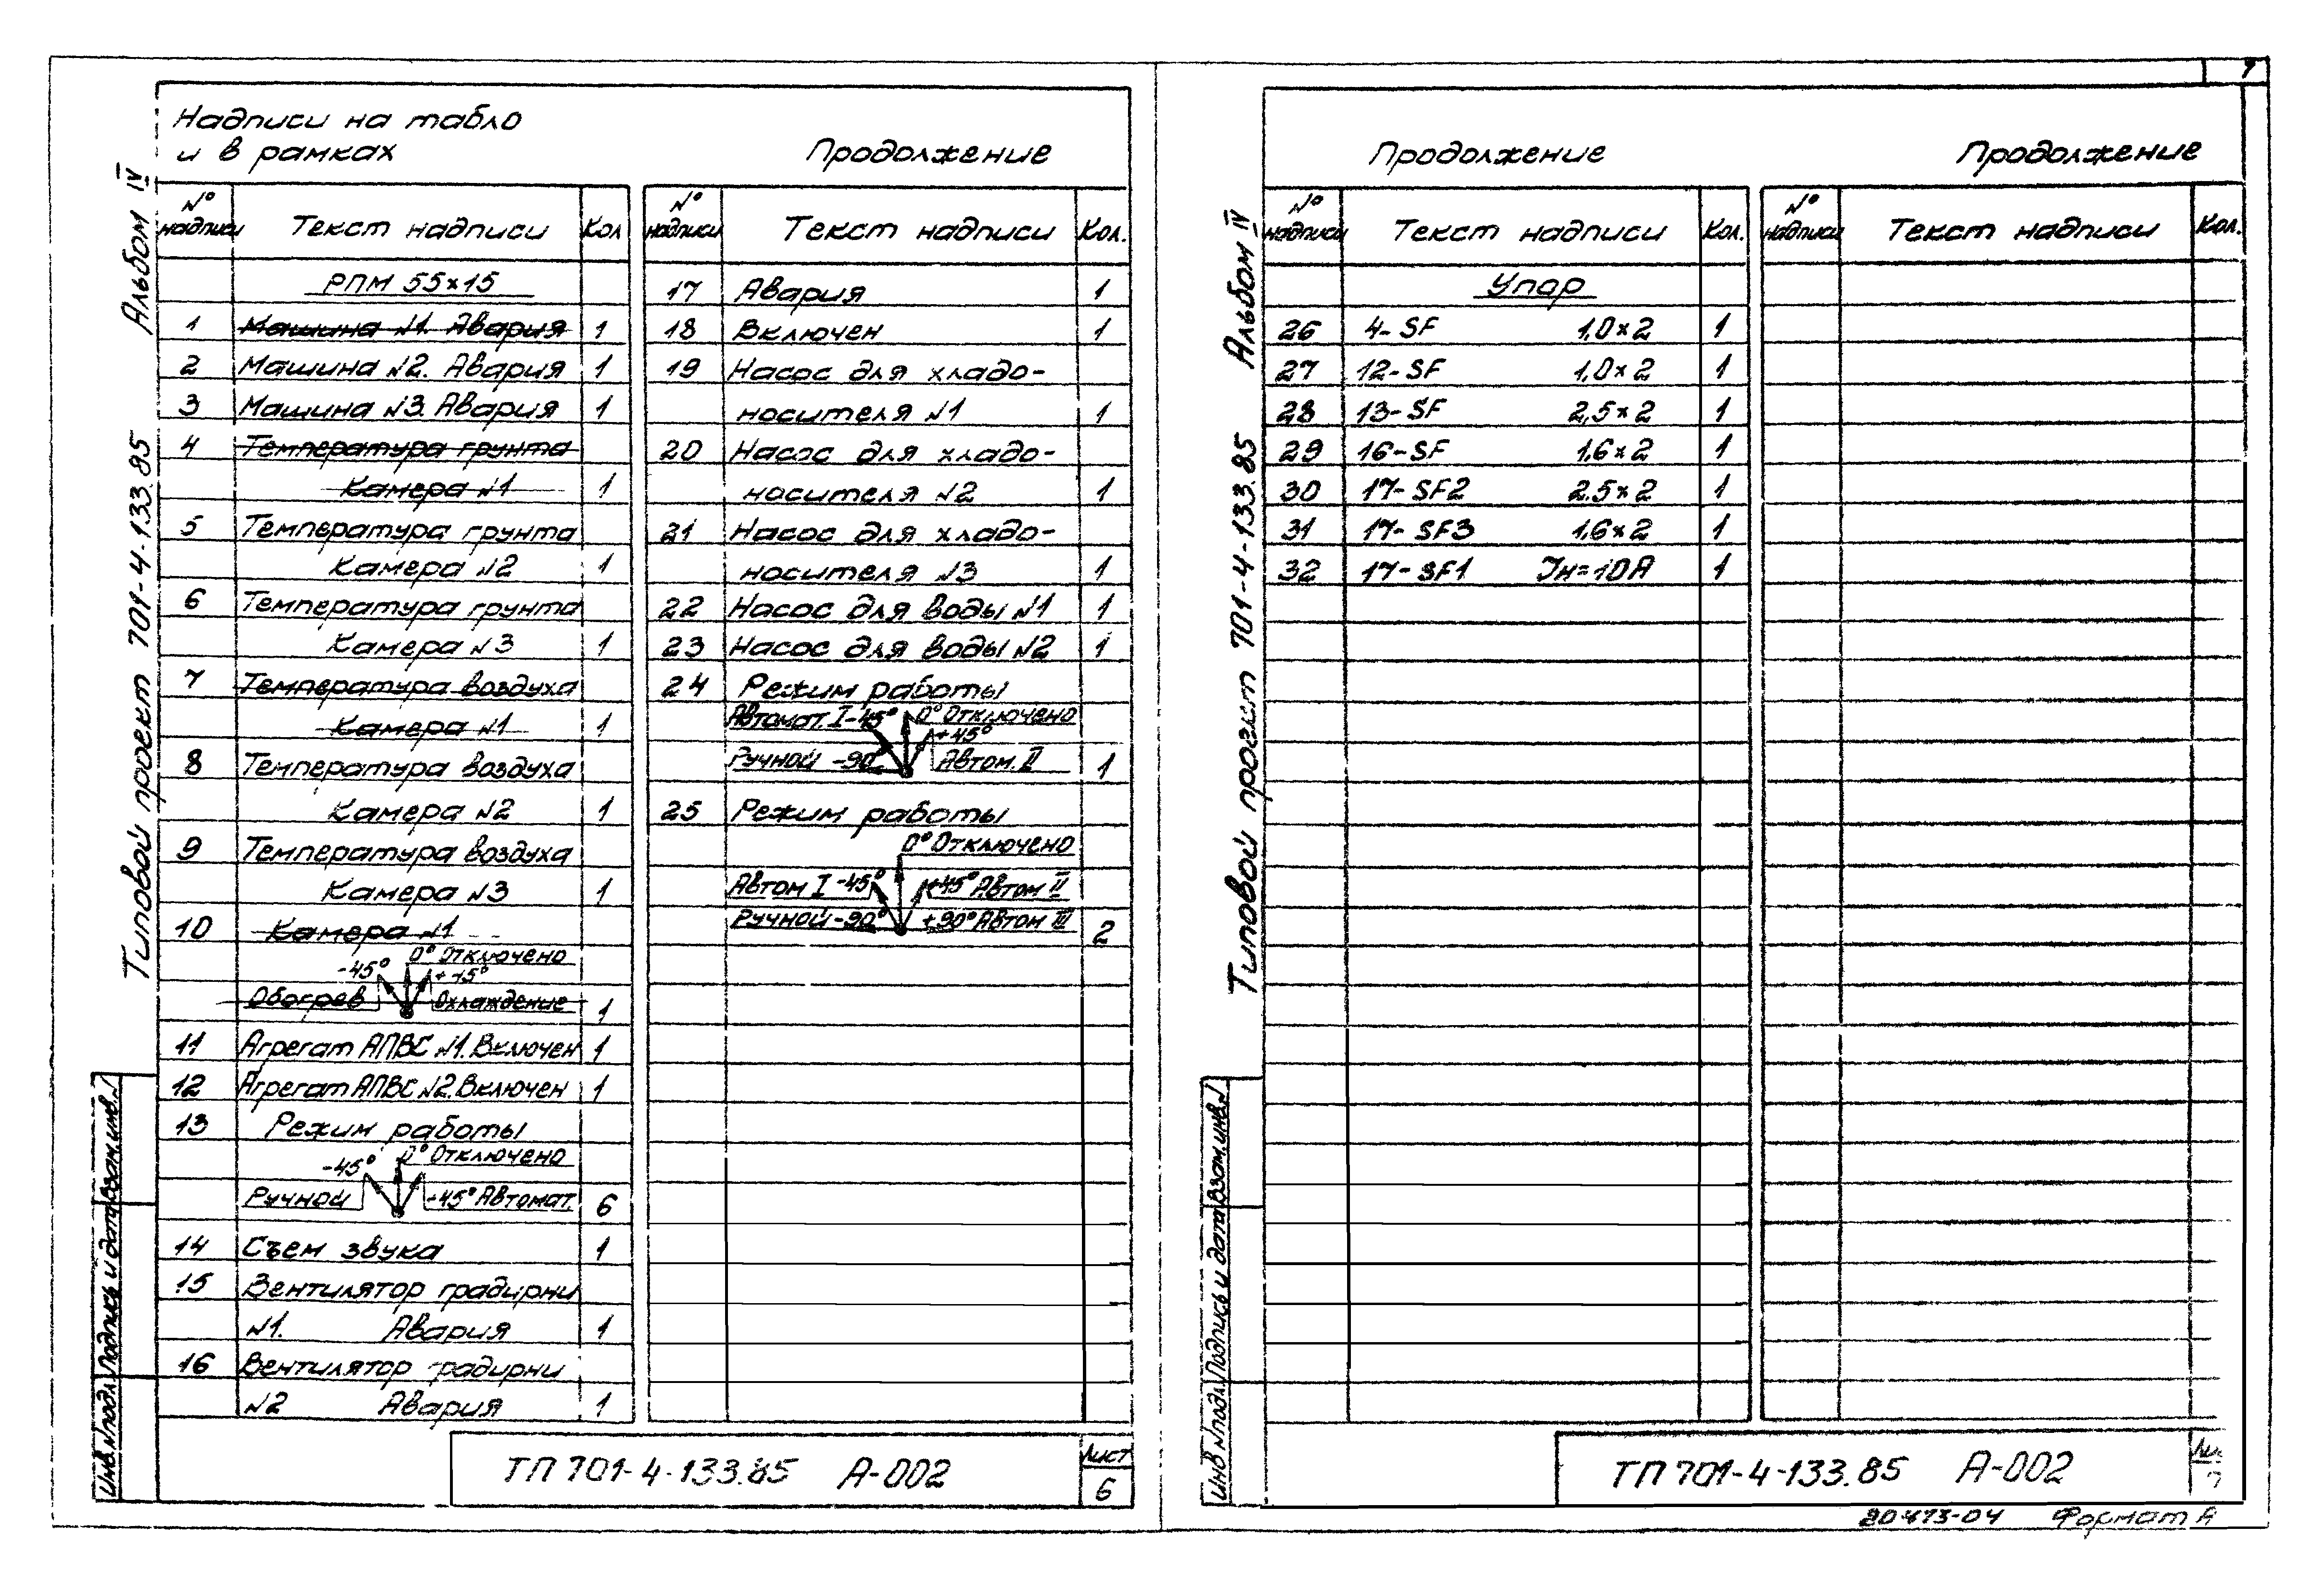 7
Надписи на табло
и в рамках
Продолжение
№ надписи Текст надписи Кол
РПМ 55×15
1 Машина №1. Авария 1
2 Машина №2. Авария 1
3 Машина №3. Авария 1
4 Температура грунта
Камера №1 1
5 Температура грунта
Камера №2 1
6 Температура грунта
Камера №3 1
7 Температура воздуха
Камера №1 1
8 Температура воздуха
Камера №2 1
9 Температура воздуха
Камера №3 1
10 Камера №1
0° Отключено
-45° +45°
Обогрев Охлаждение 1
11 Агрегат АПВС №1. Включен 1
12 Агрегат АПВС №2. Включен 1
13 Режим работы
-45° 0° Отключено
Ручной -45° Автомат. 6
14 Съем звука 1
15 Вентилятор градирни
№1. Авария 1
16 Вентилятор градирни
№2 Авария 1
№ надписи Текст надписи Кол.
17 Авария 1
18 Включен 1
19 Насос для хладо-
носителя №1 1
20 Насос для хладо-
носителя №2 1
21 Насос для хладо-
носителя №3 1
22 Насос для воды №1 1
23 Насос для воды №2 1
24 Режим работы
Автомат. I -45° 0° Отключено
+45°
Ручной -90° Автом. II 1
25 Режим работы
0° Отключено
Автом I -45° +45° Автом II
Ручной -90° +90° Автом III 2
ТП 701-4-133.85 А-002
Лист
6
Типовой проект 701-4-133.85 Альбом IV
Инв. №подл. Подпись и дата Взам.инв.№
Продолжение
Продолжение
№ надписи Текст надписи Кол.
Упор
26 4-SF 1,0×2 1
27 12-SF 1,0×2 1
28 13-SF 2,5×2 1
29 16-SF 1,6×2 1
30 17-SF2 2.5×2 1
31 17-SF3 1,6×2 1
32 17-SF1 Iн=10А 1
№ надписи Текст надписи Кол.
ТП 701-4-133.85 А-002
7
Типовой проект 701-4-133.85 Альбом IV
Инв №подл. Подпись и дата Взам.инв.№
20473-04 Формат А